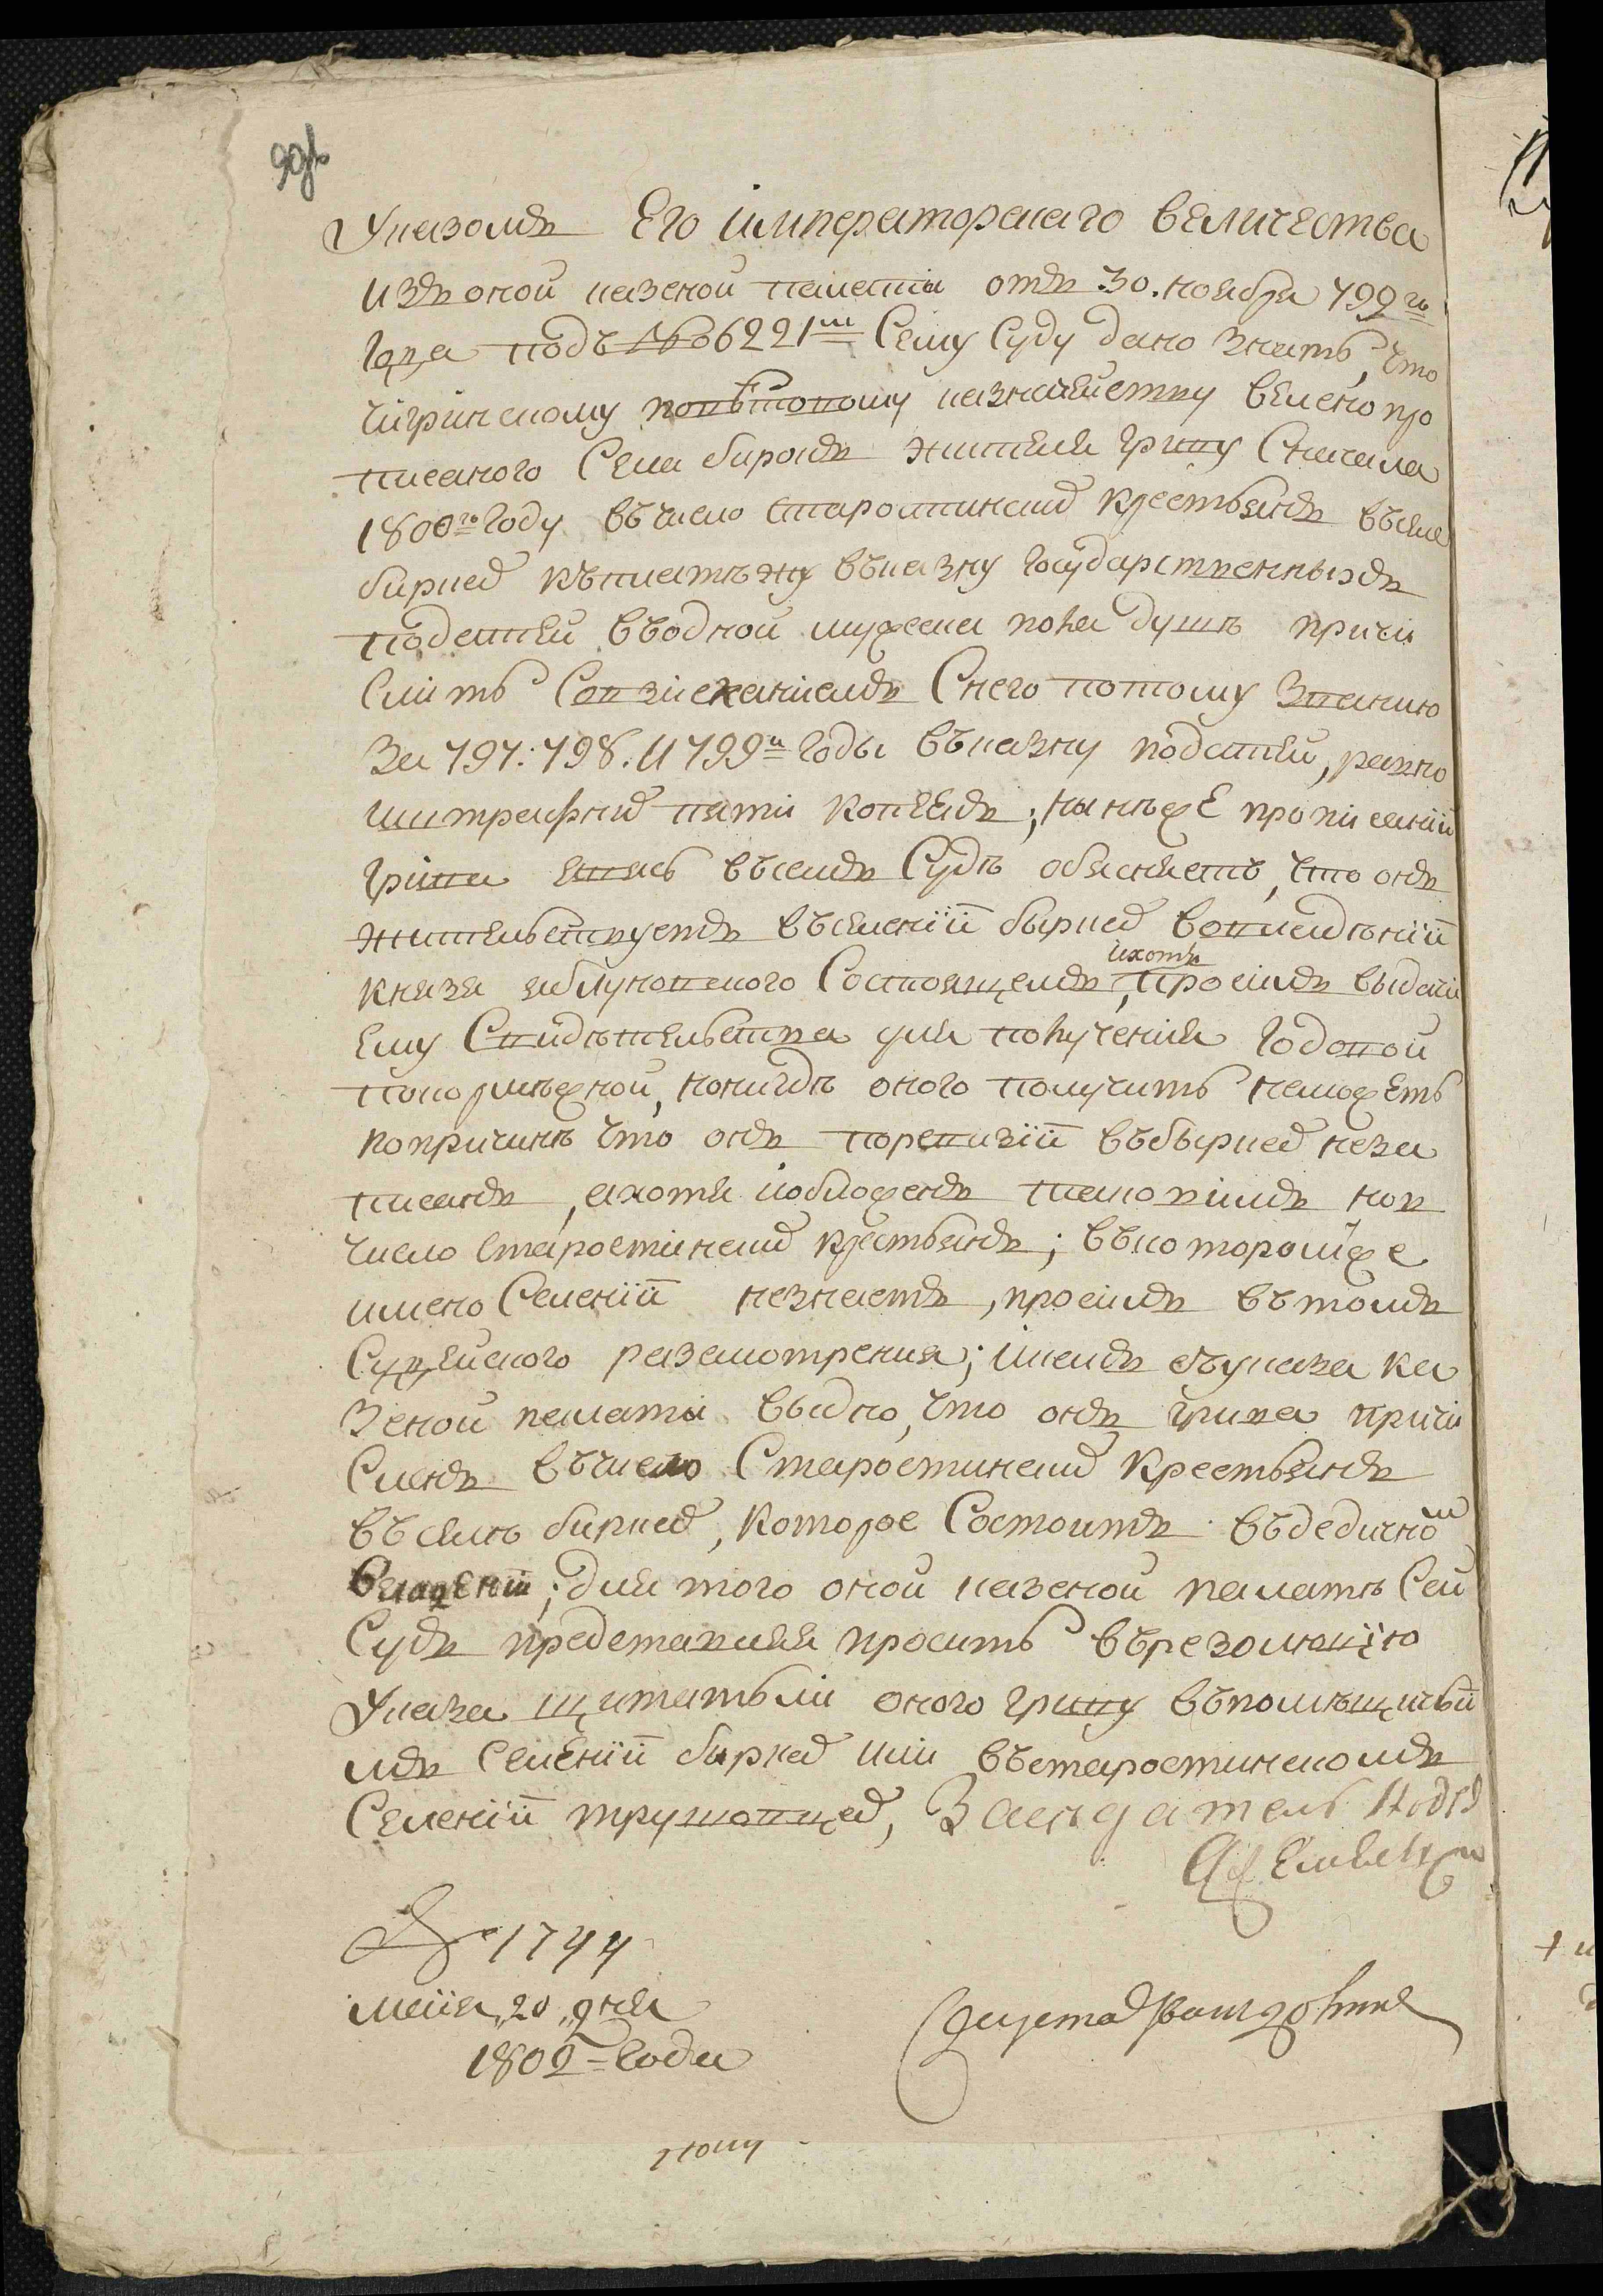 Указомъ Его императорскаго величества
изъ оной казеной палаты отъ 30. ноября 799го
года подъ №о 6221м Сему Суду дано знать, что
чигринскому повѣтовому казначейству велено про
писаного Села бирокъ жителя грицу Сначала
1800го году въ число старостинских крестьянъ въ селе
биркех къ платѣжу въ казну государственныхъ
податей въ одной мужеска пола душѣ причи
слить Совзисканиемъ Снего потому званию
За 797: 798. и 799й годы въказну податей, равно
штрафних пяти копеекъ; нынѣже прописаний
грица явясь въ семъ Судѣ обясняетъ, что онъ
жительствуетъ въселении бырках вовладѣнии
князя яблуновского Состоящемъ, ихотя просилъ выдачи
ему Свидѣтельства для получения годовой
покормѣжной, нонигдѣ оного получить неможетъ
попричинѣ что онъ поревизии въбырках неза
писанъ, ахотя иобложенъ таковимъ нов
число старостинских крестьянъ; въкоторомже
имено Селении незнаетъ, просилъ въ томъ
Судейского разсмотрения; икакъ съуказа ка
зеной палаты выдно, что онъ грица причи
сленъ въчисло Старостинских крестьянъ
въселѣ биркех, которое Состоитъ въдедичном
владении; для того оной казеной палатѣ Сей
Судъ представляя просить върезолюцию
Указа щитатьли оного грицу въпомѣщичьи
мъ Селении биркех или въстаростинскомъ
Селении трушовцах, Заседатель
№ 1744
маия „20„ дня
1802 года